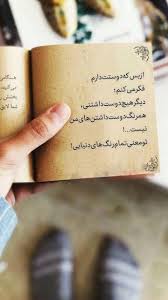 از بس که دوستت دارم
فکر می‌کنم؛
دیگر هیچ دوست داشتنی،
همرنگ دوست داشتن‌های من
نیست...!
تو معنی تمام رنگ‌های دنیایی!
هنگامی